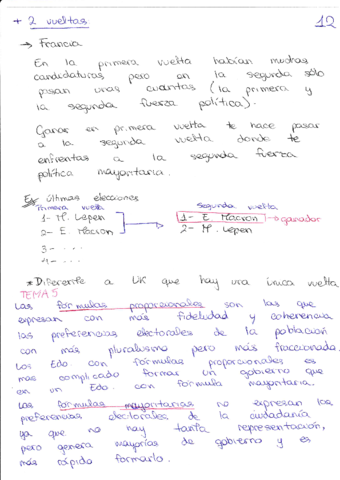 + 2 vueltas
12
→ Francia
En la primera vuelta habían muchas
candidaturas pero en la segunda sólo
pasan unas cuantas (la primera y
la segunda fuerza política).
Ganar en primera vuelta te hace pasar
a la segunda vuelta donde te
enfrentas a la segunda fuerza
política mayoritaria.
Ex últimas elecciones
Primera vuelta
Segunda vuelta
1- M. Lepen
1- E. Macron → ganador
2- E. Macron
2- M. Lepen
3- ...
4- ...
* Diferente a UK que hay una única vuelta
TEMA 5
Las fórmulas proporcionales son las que
expresan con más fidelidad y coherencia
las preferencias electorales de la población
con más pluralismo pero más fraccionada.
Los Edo con fórmulas proporcionales es
más complicado formar un gobierno que
en un Edo. con fórmula mayoritaria.
Las fórmulas mayoritarias no expresan las
preferencias electorales de la ciudadanía
ya que no hay tanta representación,
pero genera mayorías de gobierno y es
más rápido formarlo.